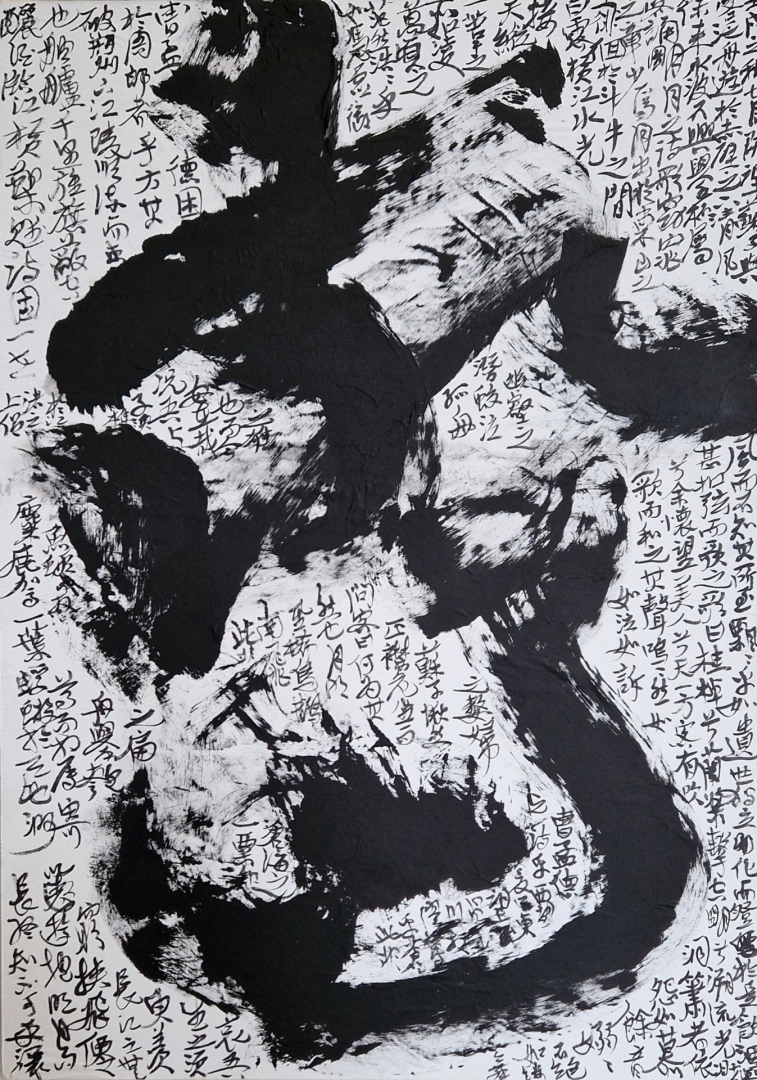 壬戌之秋七月既望蘇子與
客泛舟遊於赤壁之下清風
徐來水波不興舉酒屬客
誦明月之詩歌窈窕
之章少焉月出於東山之
徘徊於斗牛之間
白露橫江水光
接
天縱
一葦之
所如凌
萬頃之
茫然浩浩乎
如馮虛而御
風而不知其所止飄飄乎如遺世獨立羽化而登仙於是飲酒樂
甚扣弦而歌之歌曰桂棹兮蘭槳擊空明兮溯流光渺
兮余懷望美人兮天一方客有吹
洞簫者依
歌而和之其聲嗚然如
怨如慕
如泣如訴
餘音
嫋嫋
不絕
如縷
舞
幽壑之
潛蛟泣
孤舟
之嫠婦
蘇子愀然
正襟危坐而
問客曰何為其
然也月明
星稀烏鵲
南飛
此非
曹孟德
之詩乎西望
夏口東
山川
此非
曹孟
德困
於周郎者乎方其
破荊州下江陵順流而東
也舳艫千里旌旗蔽空
釃酒臨江橫槊賦詩固一世
之雄
也而今
安在哉
況吾與
子
樵
於
渚之
上侶
魚蝦而友
麋鹿駕一葉
之扁
舟舉匏
蜉蝣於天地渺
滄海之
一粟
哀吾
生之須
臾羨
長江之無
窮挾飛僊
遨遊抱明月而
長終知不可乎驟